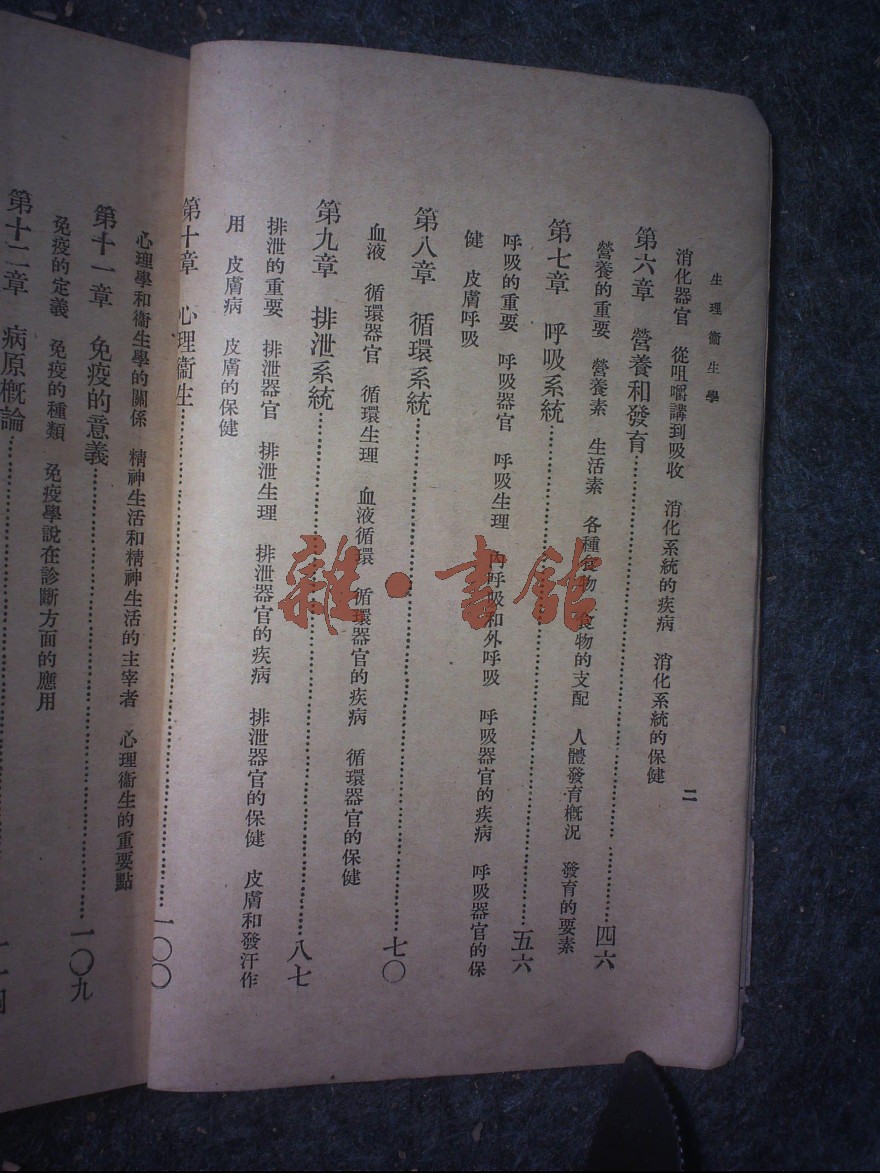 生理衞生學
二
消化器官　從咀嚼講到吸收　消化系統的疾病　消化系統的保健
第六章　營養和發育…………四六
營養的重要　營養素　生活素　各種食物　食物的支配　人體發育概況　發育的要素
第七章　呼吸系統…………五六
呼吸的重要　呼吸器官　呼吸生理　內呼吸和外呼吸　呼吸器官的疾病　呼吸器官的保
健　皮膚呼吸
第八章　循環系統…………七〇
血液　循環器官　循環生理　血液循環　循環器官的疾病　循環器官的保健
第九章　排泄系統…………八七
排泄的重要　排泄器官　排泄生理　排泄器官的疾病　排泄器官的保健　皮膚和發汗作
用　皮膚病　皮膚的保健
第十章　心理衞生…………一〇〇
心理學和衞生學的關係　精神生活和精神生活的主宰者　心理衞生的重要點
第十一章　免疫的意義…………一〇九
免疫的定義　免疫的種類　免疫學說在診斷方面的應用
第十二章　病原概論…………
雜·書館